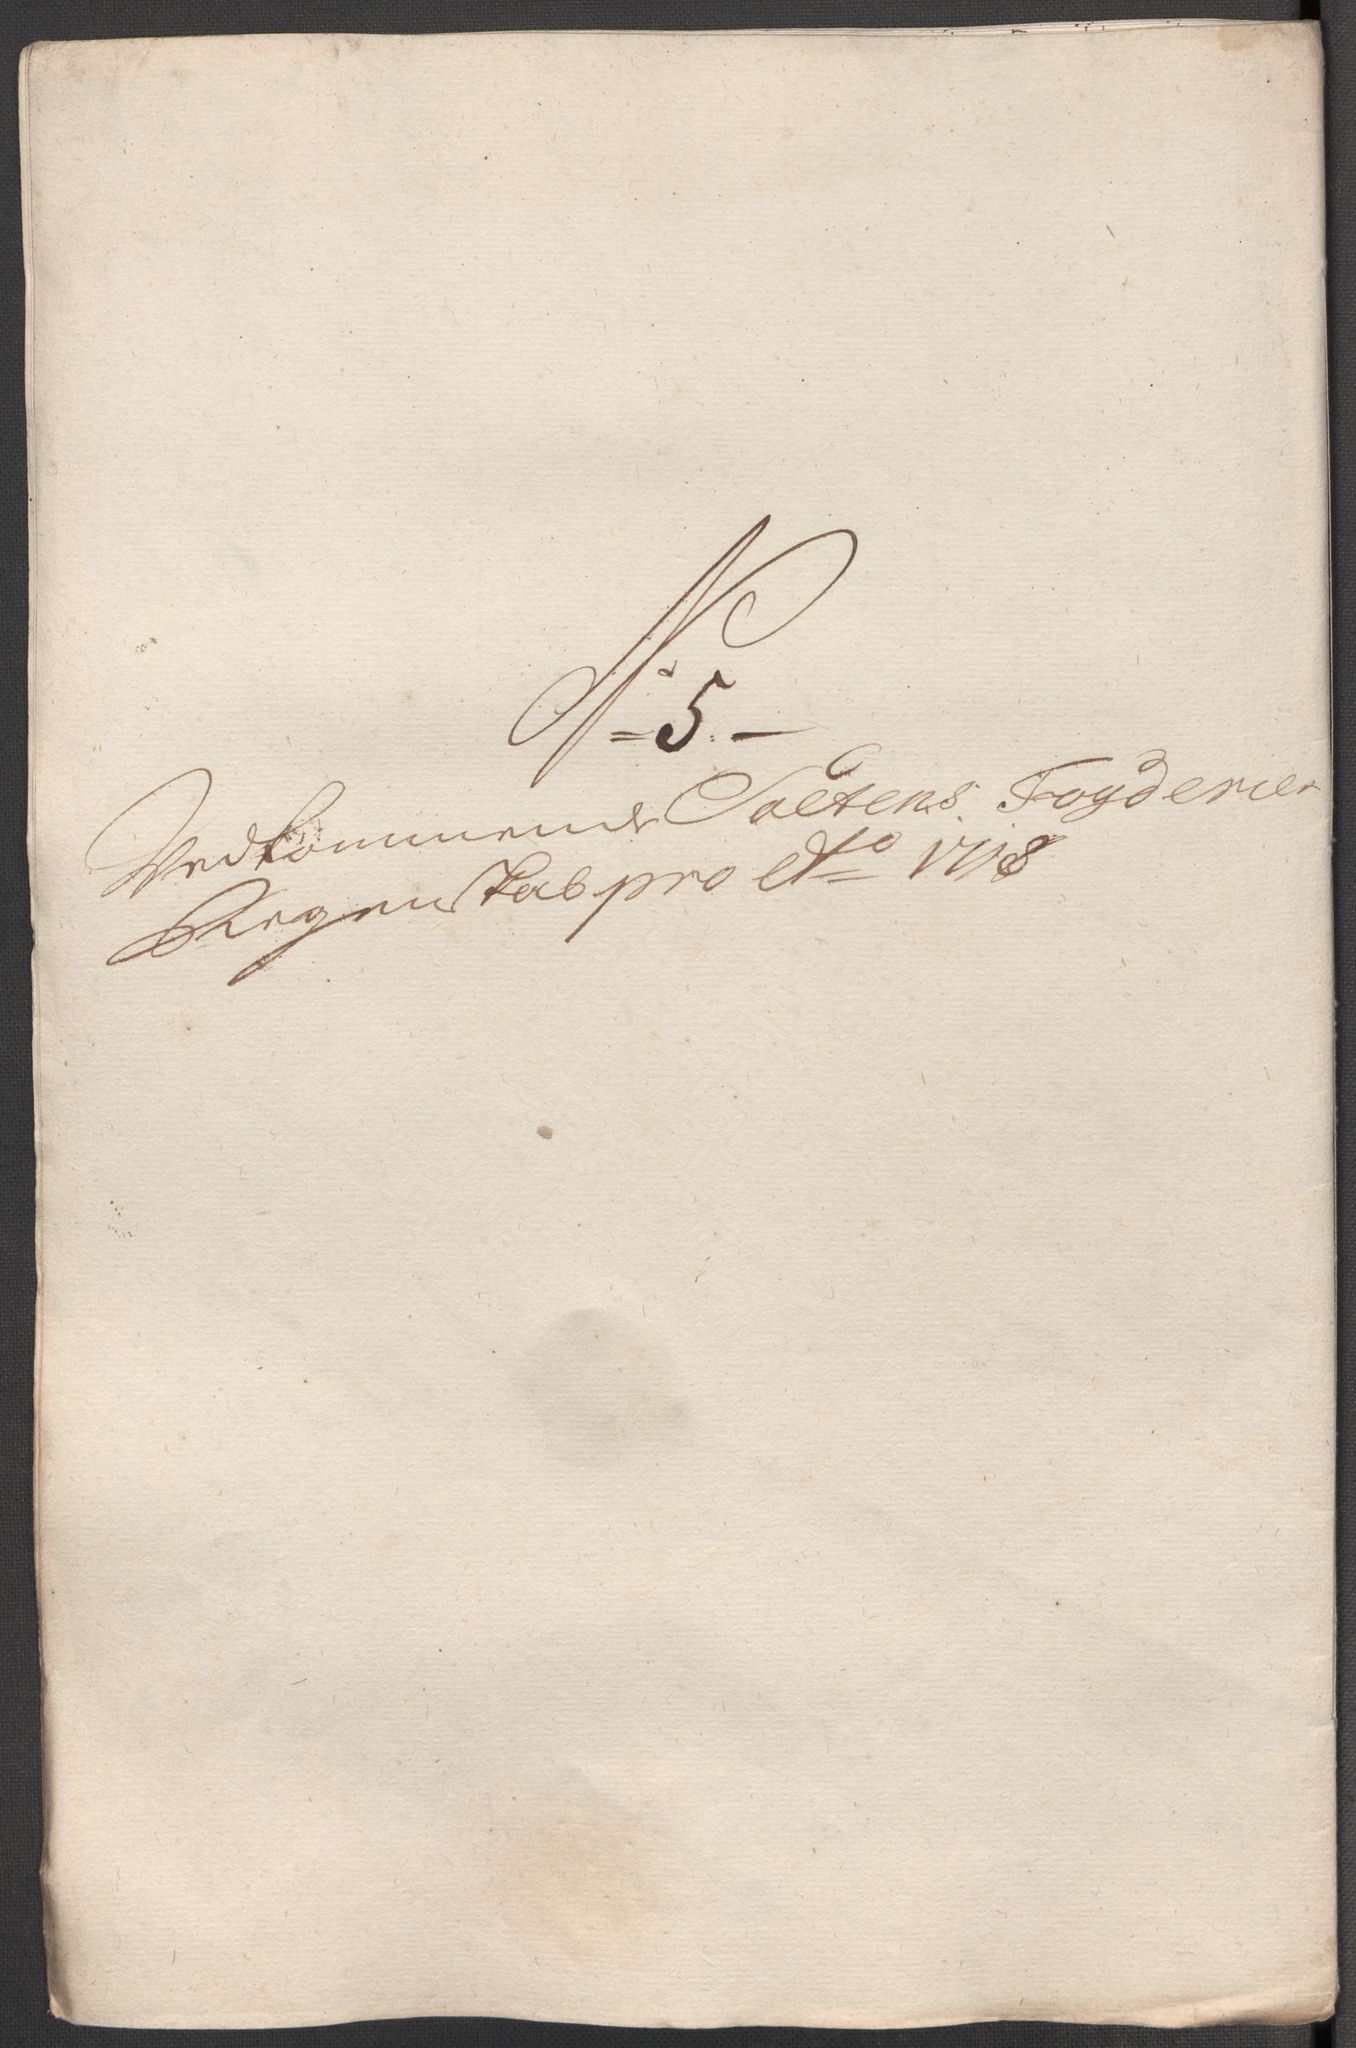 N:
= 5. –
Vedkommende Saltens Fogderies
Regenskab pro Ao 1718